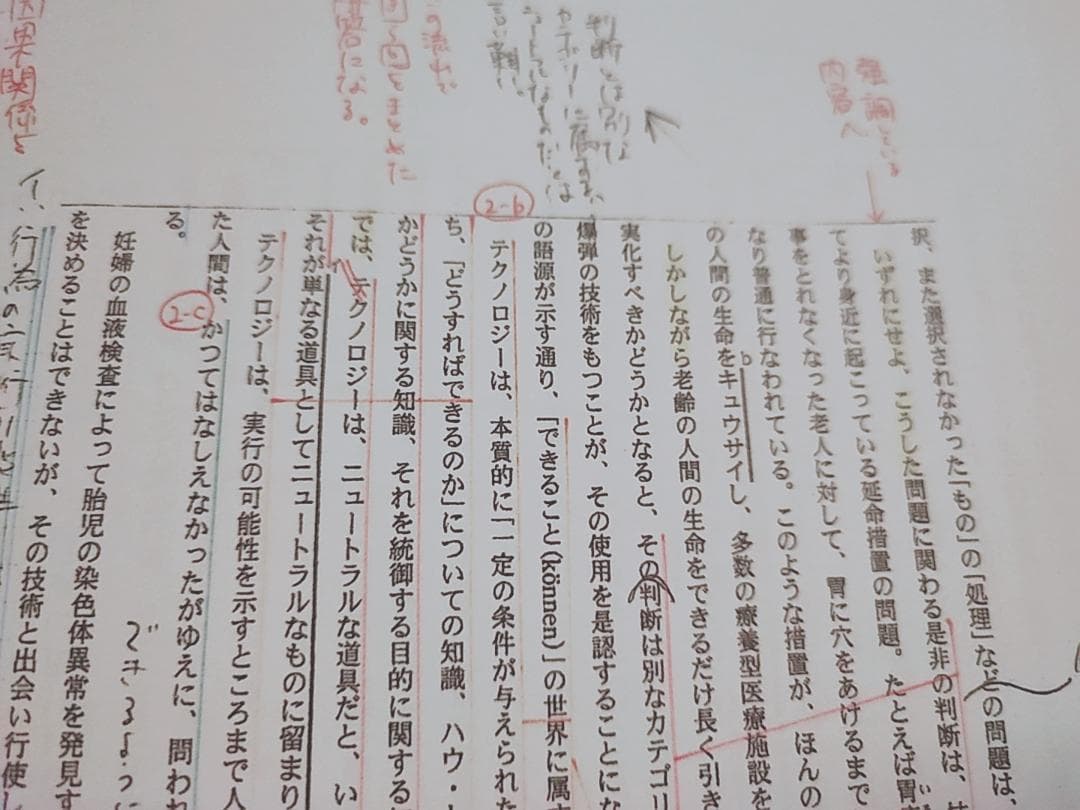 強調している
内容へ
判断とは別な
カテゴリーに属する、
ニュートラルなものだとは
言い難い。
の流れで
回る図をまとめた
内容になる。
因果関係を
択、また選択されなかった「もの」の「処理」などの問題は、
いずれにせよ、こうした問題に関わる是非の判断は、
てより身近に起こっている延命措置の問題。たとえば胃
事をとれなくなった老人に対して、胃に穴をあけるまで
なり普通に行なわれている。このような措置が、ほんの
の人間の生命をキュウサイし、多数の療養型医療施設を
b
しかしながら老齢の人間の生命をできるだけ長く引き
実化すべきかどうかとなると、その判断は別なカテゴリ
爆弾の技術をもつことが、その使用を是認することにな
の語源が示す通り、「できること(können)」の世界に属す
2-b
テクノロジーは、本質的に「一定の条件が与えられた
ち、「どうすればできるのか」についての知識、ハウ・
かどうかに関する知識、それを統御する目的に関する
では、テクノロジーは、ニュートラルな道具だと、い
イ
それが単なる道具としてニュートラルなものに留まり
テクノロジーは、実行の可能性を示すところまで人
た人間は、かつてはなしえなかったがゆえに、問われ
2-c
る。
妊婦の血液検査によって胎児の染色体異常を発見す
を決めることはできないが、その技術と出会い行使
できるように
イ、行為の